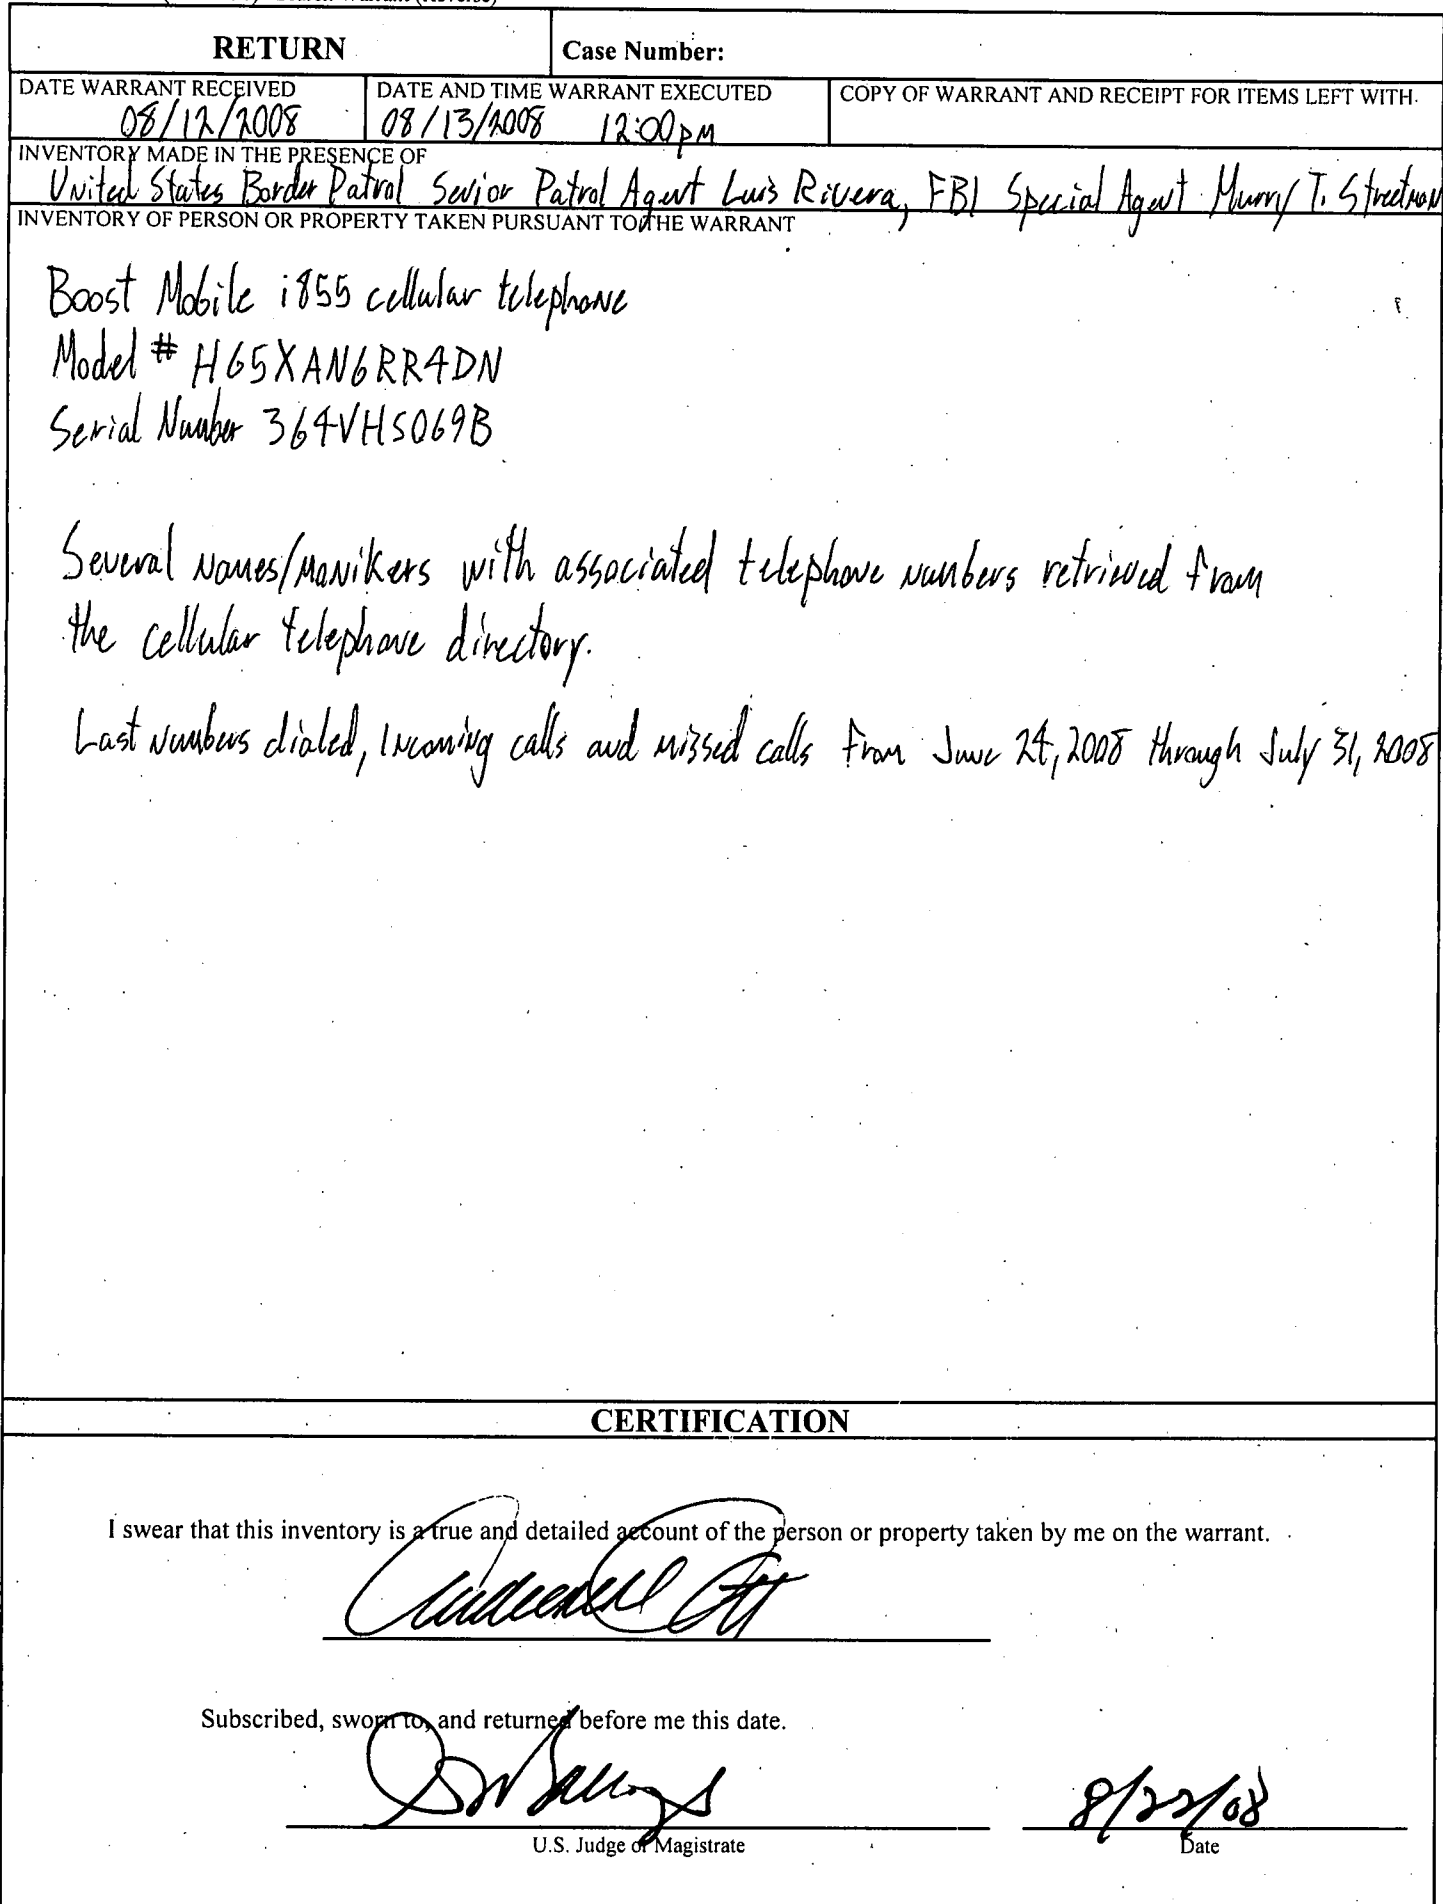 RETURN
Case Number:
DATE WARRANT RECEIVED
08/12/2008
DATE AND TIME WARRANT EXECUTED
08/13/2008 12:00pm
COPY OF WARRANT AND RECEIPT FOR ITEMS LEFT WITH
INVENTORY MADE IN THE PRESENCE OF
United States Border Patrol Senior Patrol Agent Luis Rivera, FBI Special Agent Murry T. Streetman
INVENTORY OF PERSON OR PROPERTY TAKEN PURSUANT TO THE WARRANT
Boost Mobile i855 cellular telephone
Model # H65XAN6RR4DN
Serial Number 364VHS069B
Several names/monikers with associated telephone numbers retrieved from
the cellular telephone directory.
Last numbers dialed, incoming calls and missed calls from June 24, 2008 through July 31, 2008
CERTIFICATION
I swear that this inventory is a true and detailed account of the person or property taken by me on the warrant.
Subscribed, sworn to, and returned before me this date.
8/22/08
U.S. Judge or Magistrate
Date